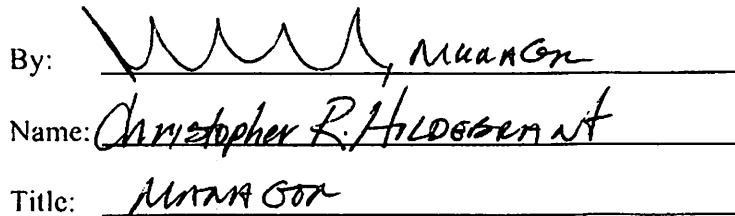 By: , Manager
Name: Christopher R. Hildebrant
Title: Manager